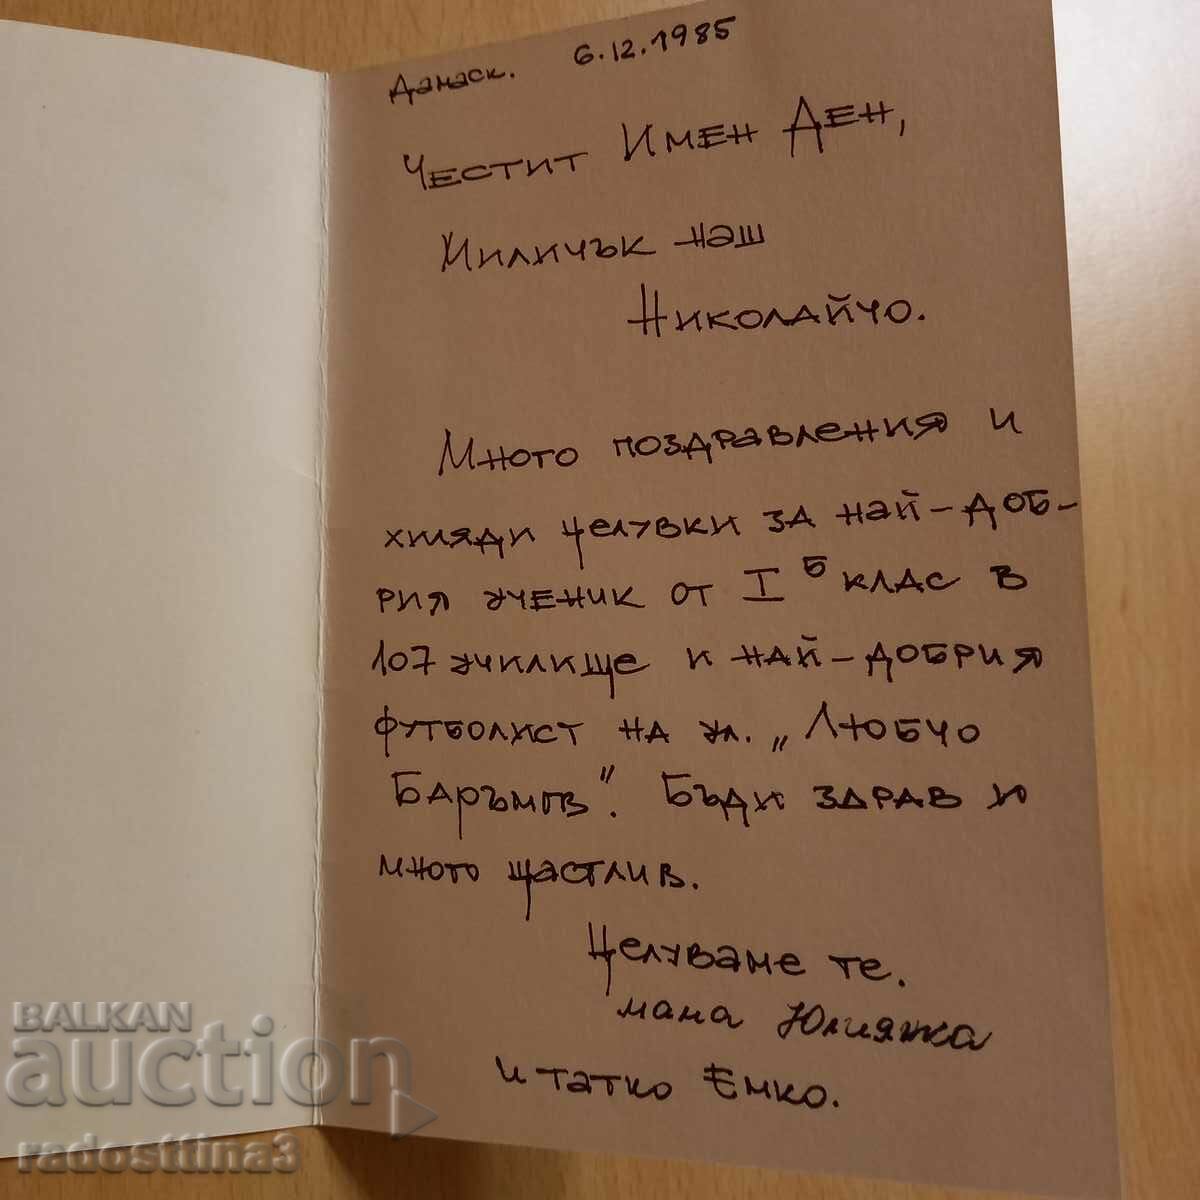 Дамаск. 6.12.1985
Честит Имен Ден,
Миличък наш
Николайчо.
Много поздравления и
хиляди целувки за най-доб-
рия ученик от I б клас в
107 училище и най-добрия
футболист на ул. „Любчо
Баръмов". Бъди здрав и
много щастлив.
Целуваме те.
мама Юлияна
и татко Емко.
BALKAN
auction
radosttina3